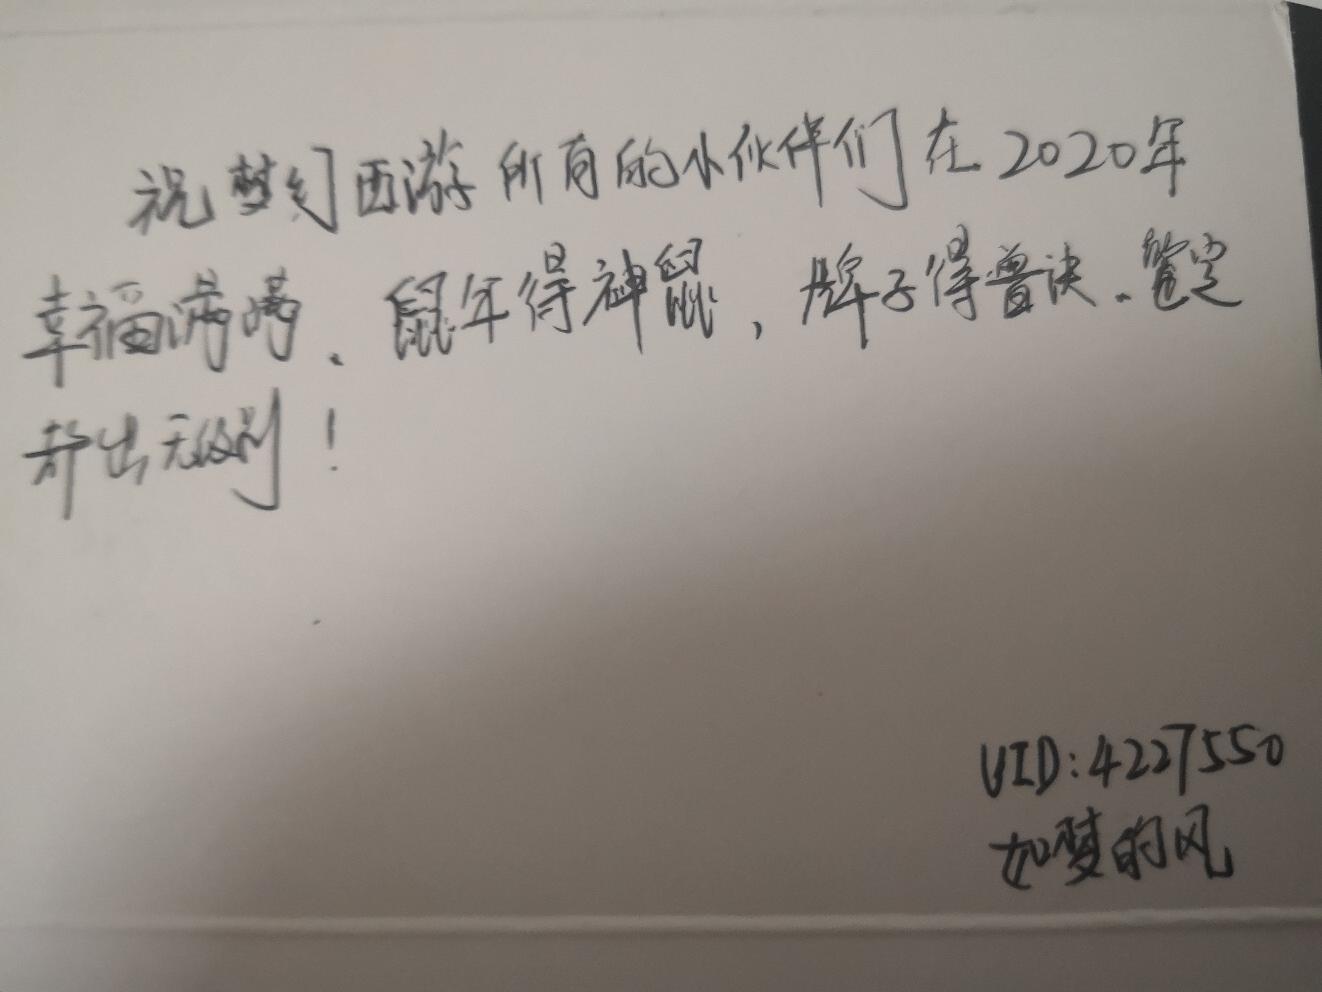 祝梦幻西游所有的小伙伴们在2020年
幸福满满、鼠年得神鼠，牌子得兽诀、鉴定
都出无级别！
UID:4227550
如梦的风